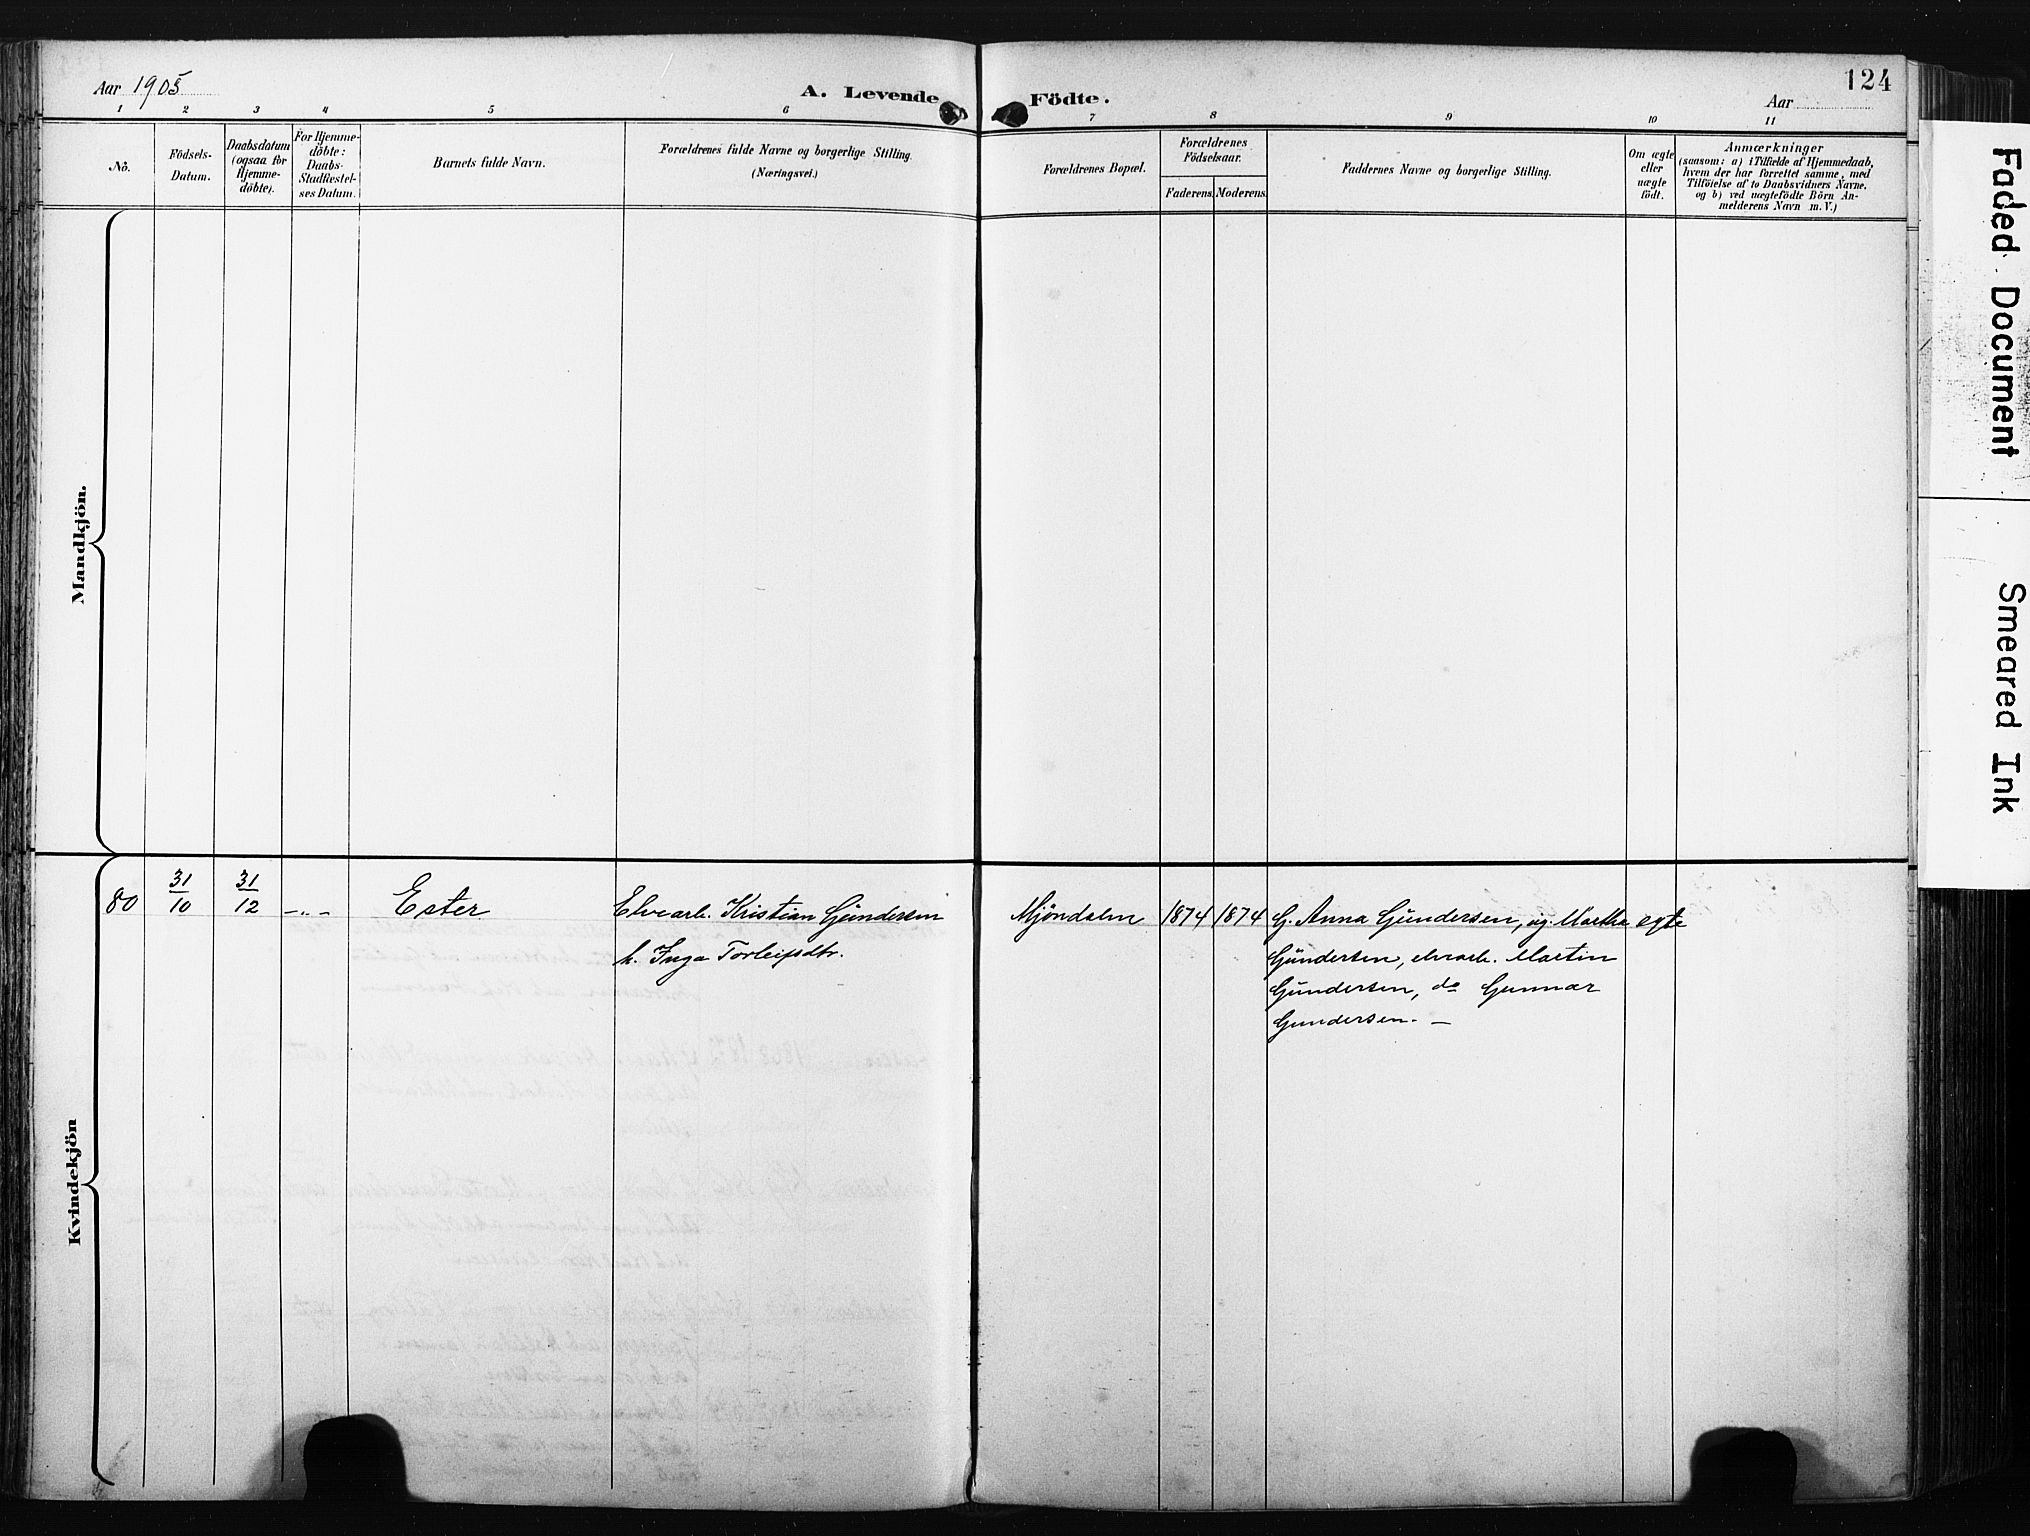 Aar 1905
A. Levende
Födte.
124
Aar
1 2 3 4 5 6 7 8 9 10 11
No.
Födsels-
Datum.
Daabsdatum
(ogsaa for
Hjemme-
döbte).
For Hjemme-
döbte:
Daabs-
Stadfæstel-
ses Datum.
Barnets fulde Navn.
Forældrenes fulde Navne og borgerlige Stilling
(Næringsvei.)
Forældrenes Bopæl.
Forældrenes
Födselsaar.
Faderens Moderens.
Faddernes Navne og borgerlige Stilling.
Om ægte
eller
uægte
födt.
Anmærkninger
(saasom: a) i Tilfælde af Hjemmedaab,
hvem der har forrettet samme, med
Tilföielse af to Daabsvidners Navne.
og b) ved uægtefödte Börn An-
melderens Navn m. V.)
Mandkjön.
Kvindekjön
80 31/10 31/12 -„- Ester Elvearb. Kristian Gundersen Mjöndalen 1874 1874 G. Anna Gundersen, ug. Marthe egte
h. Inga Torleifsdtr. Gundersen, elvearb. Martin
Gundersen, do Gunnar
Gundersen. -
Faded Document
Smeared Ink